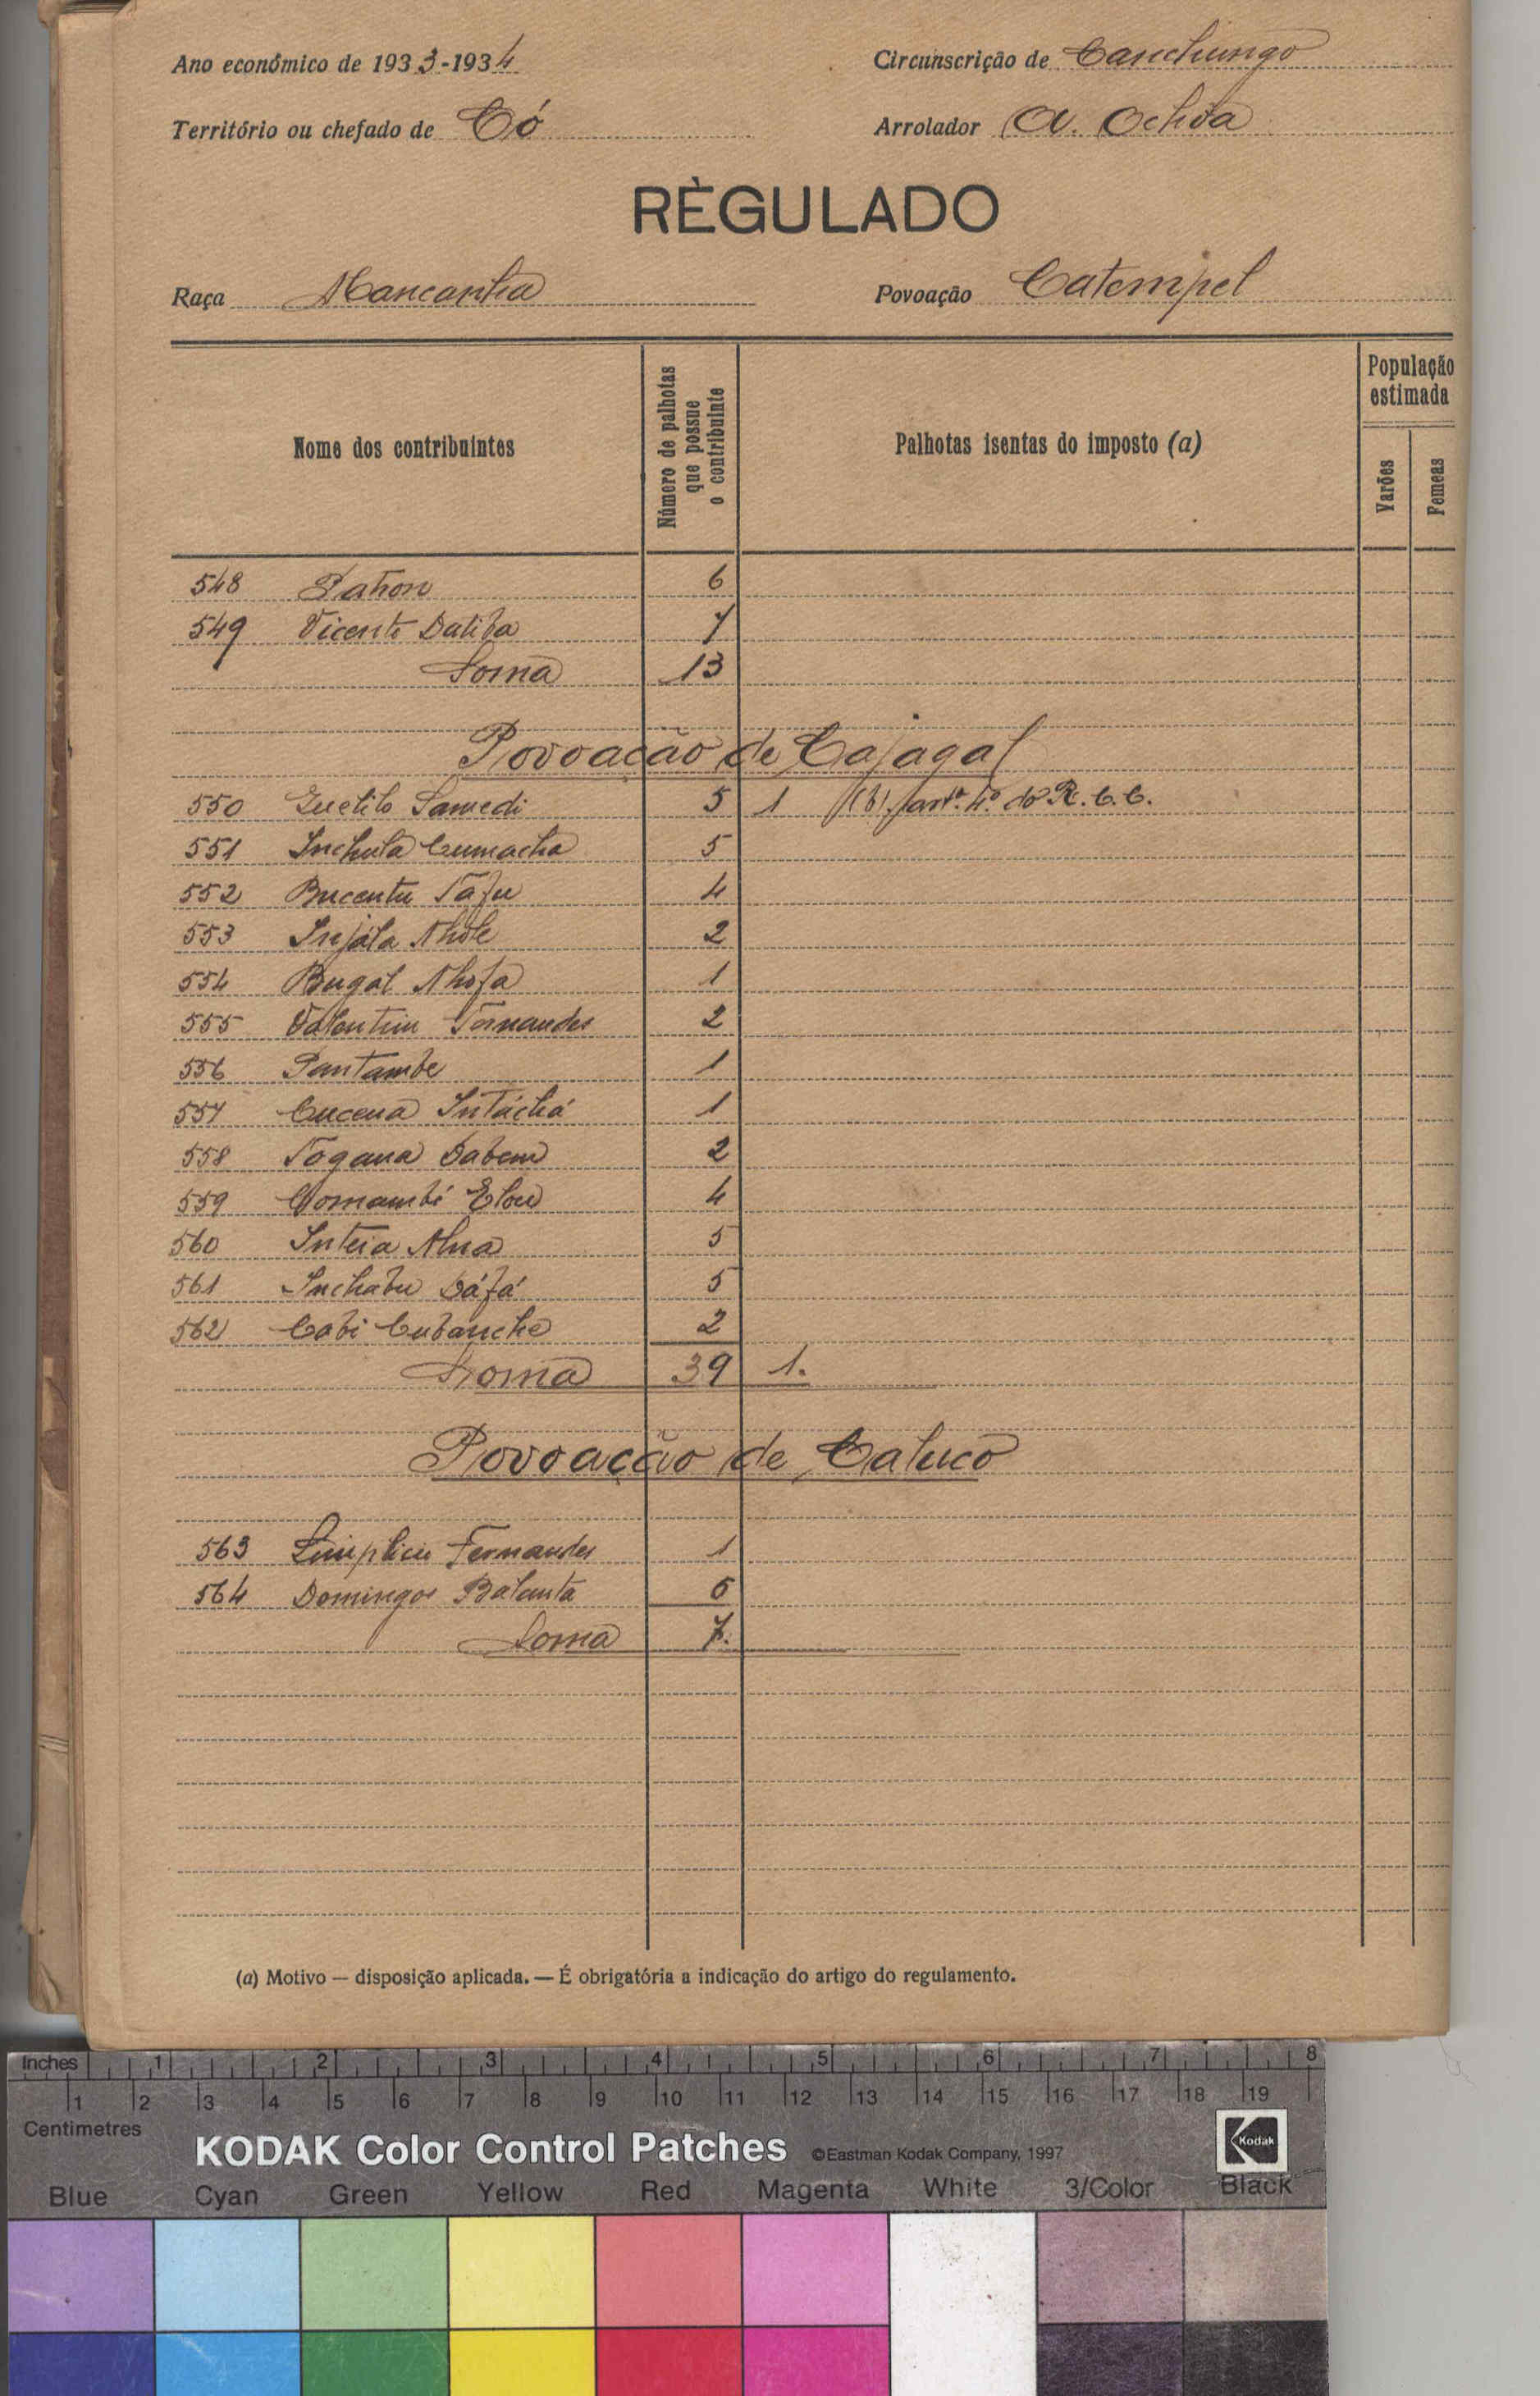 Ano económico de 1933-1934
Circunscrição de Canchungo
Território ou chefado de Có
Arrolador A. Ochôa
RÈGULADO
Raça Mancanha
Povoação Catempel
Nome dos contribuintes
Número de palhotas que possue o contribuinte
Palhotas isentas do imposto (a)
População estimada
Varões
Femeas
548 Patron 6
549 Vicente Datiba 7
Soma 13
Povoação de Cajagal
550 Samedi 5 1 (b) artº. 4º do R. C. C.
551 Inchula Cumacha 5
552 Bucentu Tafu 4
553 Injála Nhole 2
554 Bugal Nhofa 1
555 Valentim Fernandes 2
556 Pantambe 1
557 Cucena Intáchá 1
558 Togana Dabem 2
559 4
560 Inteia 5
561 Inchabu Dáfá 5
562 Cabi Cubanche 2
Soma 39 1.
Povoação de Caluco
563 Simplicio Fernandes 1
564 Domingos Balanta 6
Soma 7.
(a) Motivo — disposição aplicada. — É obrigatória a indicação do artigo do regulamento.
Inches 1 2 3 4 5 6 7 8
1 2 3 4 5 6 7 8 9 10 11 12 13 14 15 16 17 18 19
Centimetres
KODAK Color Control Patches ©Eastman Kodak Company, 1997 Kodak
Blue Cyan Green Yellow Red Magenta White 3/Color Black